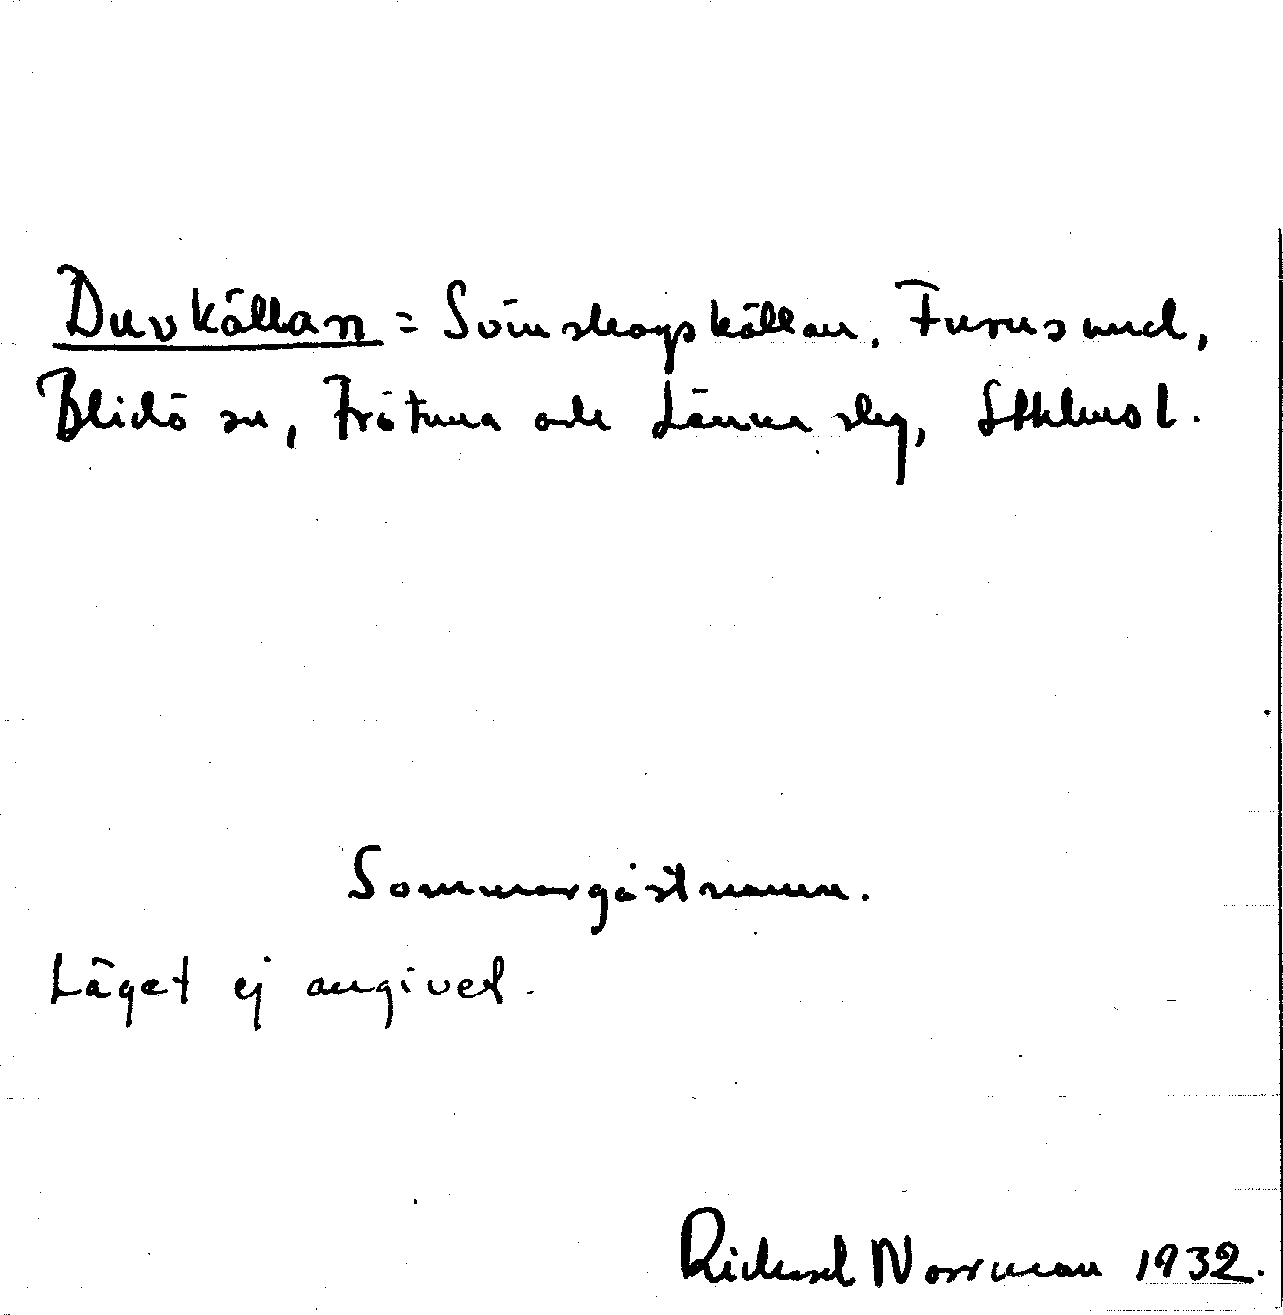 Duvkällan = Svinskogskällan, Furusund,
Blidö sn, Frötuna och Länna skg, Sthlms l.
Sommargästnamn.
Läget ej angivet.
Rickard Norrman 1932.